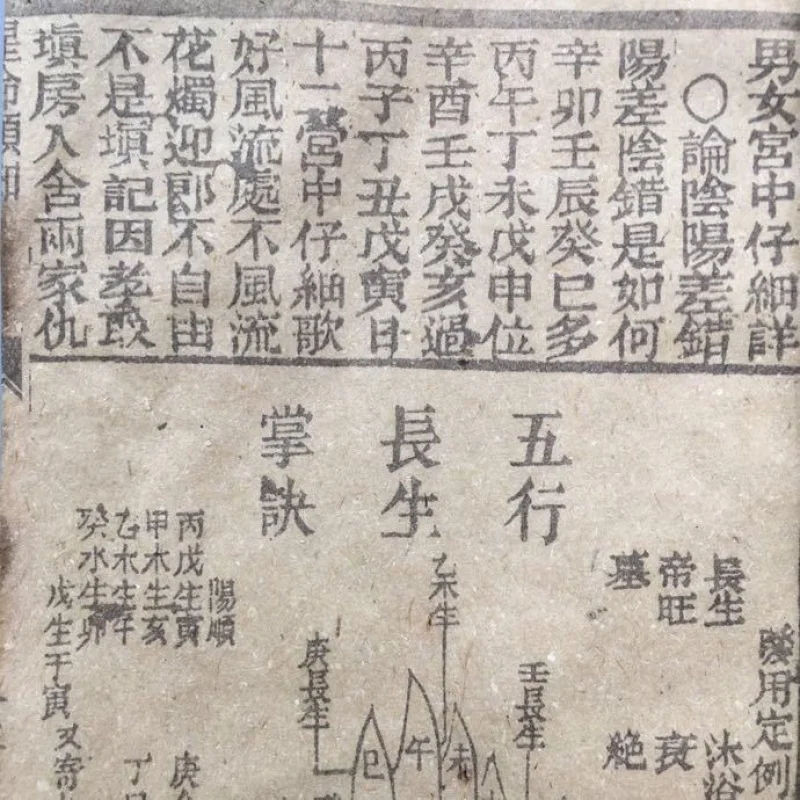 男女宮中仔細詳
○論陰陽差錯
陽差陰錯是如何
辛卯壬辰癸巳多
丙午丁未戊申位
辛酉壬戌癸亥過
丙子丁丑戊寅日
十二宮中仔細歌
好風流處不風流
花燭迎郎不自由
不是填記因孝敢
填房入舍兩家仇
五行
長生
掌訣
發用定例
長生 沐浴
帝旺 衰
墓 絶
壬長生
乙木生
未
午
巳
庚長生
陽順
丙戊生寅
甲木生亥
乙木生午
癸水生卯
戊生于寅又寄